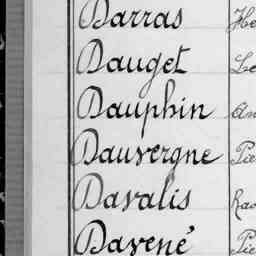 Darras
Dauget
Dauphin
Dauvergne
Davalis
Davené